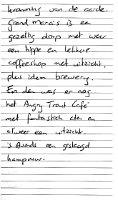 kromming van de aarde.
Grand Marais is een
gezellig dorp met weer
een hippe en lekkere
coffeeshop met uitzicht,
plus idem brewery.
En dan was er nog
het Angry Trout Café
met fantastisch eten en
alweer een uitzicht.
's Avonds een geslaagd
kampvuur.